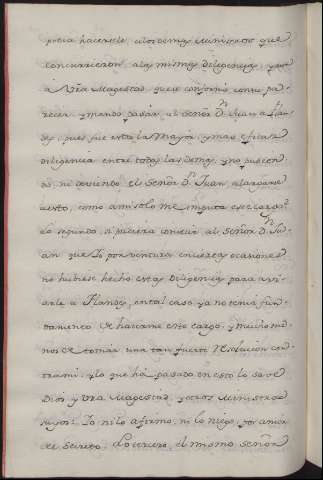 podia hacersele, a los demas Ministros que
concurrieron a las mismas diligencias, y aun
a Vra Magestad que se conformó con su pa-
recer, y mandó pasar al Señor Dn Juan a Flan-
des, pues fue esta la mayor, y mas eficaz
diligencia entre todas las demas, y no pudien-
do, ni deviendo el Señor Dn Juan alargarse
a esto, como a mi solo me imputa ese cargo?
Lo segundo, si pudiera constar al Señor Dn Ju-
an que Yo por ventura en ciertas ocasiones
no hubiese hecho estas diligencias para avi-
arle a Flandes, en tal caso ya no tenia fun-
damento de hacerme este cargo, y mucho me-
nos de tomar una tan fuerte resolucion con-
tra mi, y lo que há pasado en esto lo save
Dios, y Vra Magestad, y otros Ministros
suyos. Yo ni lo afirmo, ni lo niego, por amor
de Secreto. Lo tercero, el mismo Señor